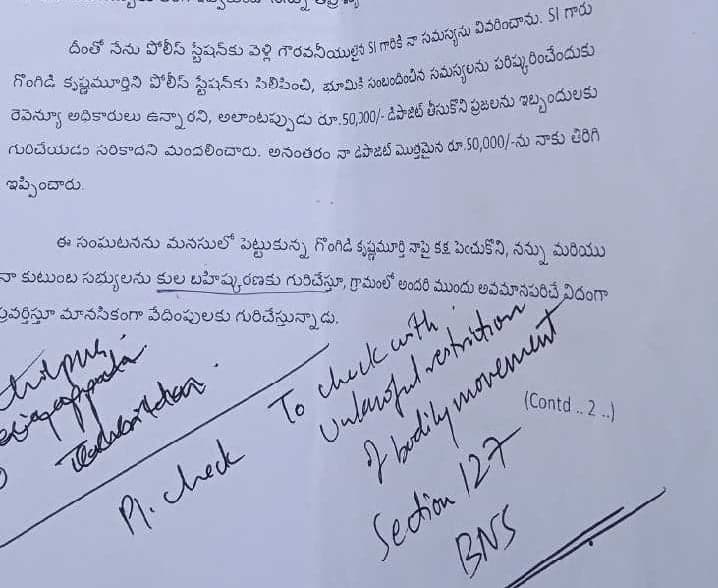 దీంతో నేను పోలీస్ స్టేషన్‌కు వెళ్లి గౌరవనీయులైన SI గారికి నా సమస్యను వివరించాను. SI గారు
గొంగిడి కృష్ణమూర్తిని పోలీస్ స్టేషన్‌కు పిలిపించి, భూమికి సంబంధించిన సమస్యలను పరిష్కరించేందుకు
రెవెన్యూ అధికారులు ఉన్నారని, అలాంటప్పుడు రూ.50,000/- డిపాజిట్ తీసుకొని ప్రజలను ఇబ్బందులకు
గురిచేయడం సరికాదని మందలించారు. అనంతరం నా డిపాజిట్ మొత్తమైన రూ.50,000/-ను నాకు తిరిగి
ఇప్పించారు.
ఈ సంఘటనను మనసులో పెట్టుకున్న గొంగిడి కృష్ణమూర్తి నాపై కక్ష పెంచుకొని, నన్ను మరియు
నా కుటుంబ సభ్యులను కుల బహిష్కరణకు గురిచేస్తూ, గ్రామంలో అందరి ముందు అవమానపరిచే విధంగా
ప్రవర్తిస్తూ మానసికంగా వేధింపులకు గురిచేస్తున్నాడు.
Pl. check
To check with
unlawful restriction
of bodily movement
(Contd .. 2 ..)
Section 127
BNS